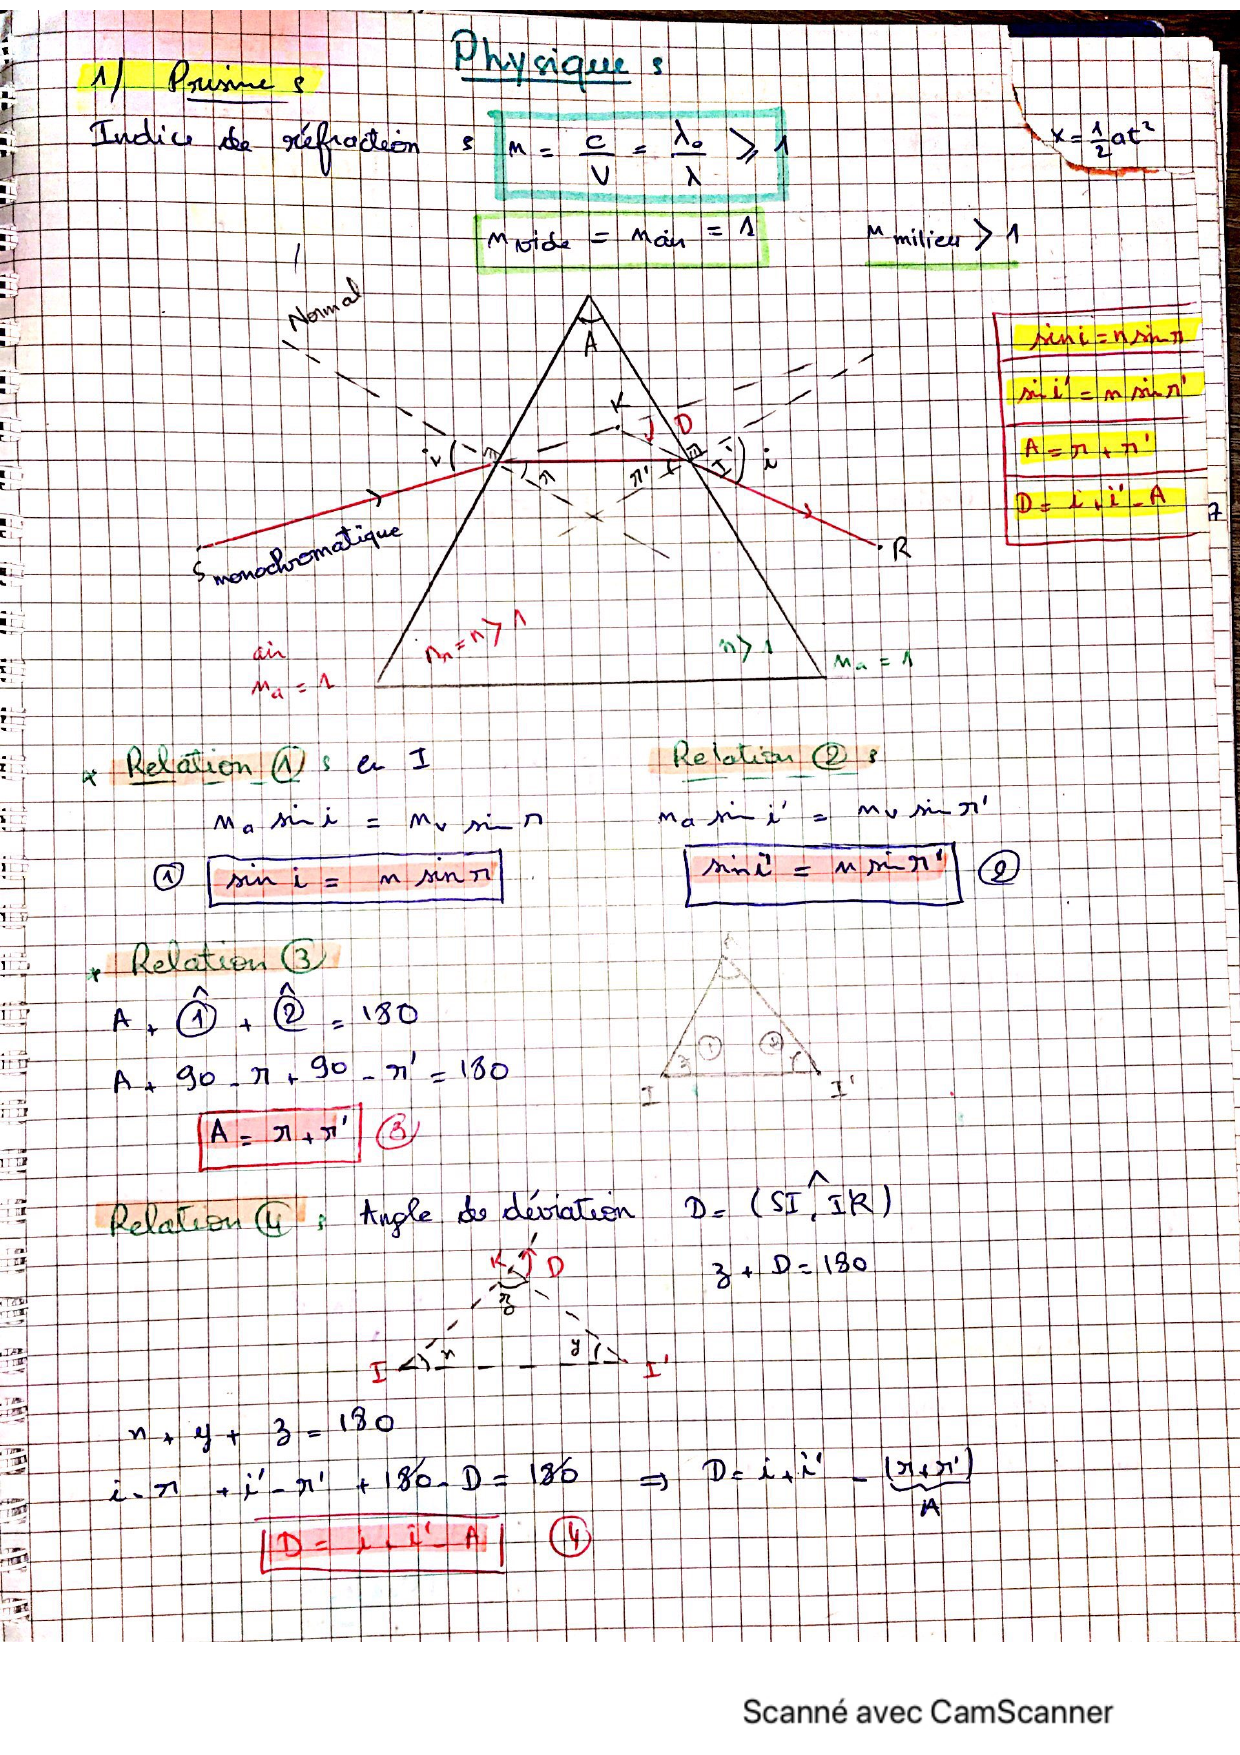 Physique :
1) Prisme :
Indice de réfraction : n = c/V = λ₀/λ ⩾ 1
x = 1/2 at²
n vide = n air = 1
n milieu > 1
Normal
A
K
D
i
r
r'
I'
i
S
monochromatique
R
air
nₐ = 1
n = n > 1
n > 1
nₐ = 1
sin i = n sin r
sin i' = n sin r'
A = r + r'
D = i + i' - A
* Relation ① : en I
Relation ② :
nₐ sin i = nᵥ sin r
nₐ sin i' = nᵥ sin r'
① sin i = n sin r
sin i' = n sin r' ②
* Relation ③
A + ①̂ + ②̂ = 180
A + 90 - r + 90 - r' = 180
A = r + r' ③
① ②
I I'
Relation ④ : Angle de déviation D = (SI, IR)
K D
z + D = 180
z
I x y I'
x + y + z = 180
i - r + i' - r' + 180 - D = 180 ⇒ D = i + i' - (r + r')
A
D = i + i' - A ④
Scanné avec CamScanner